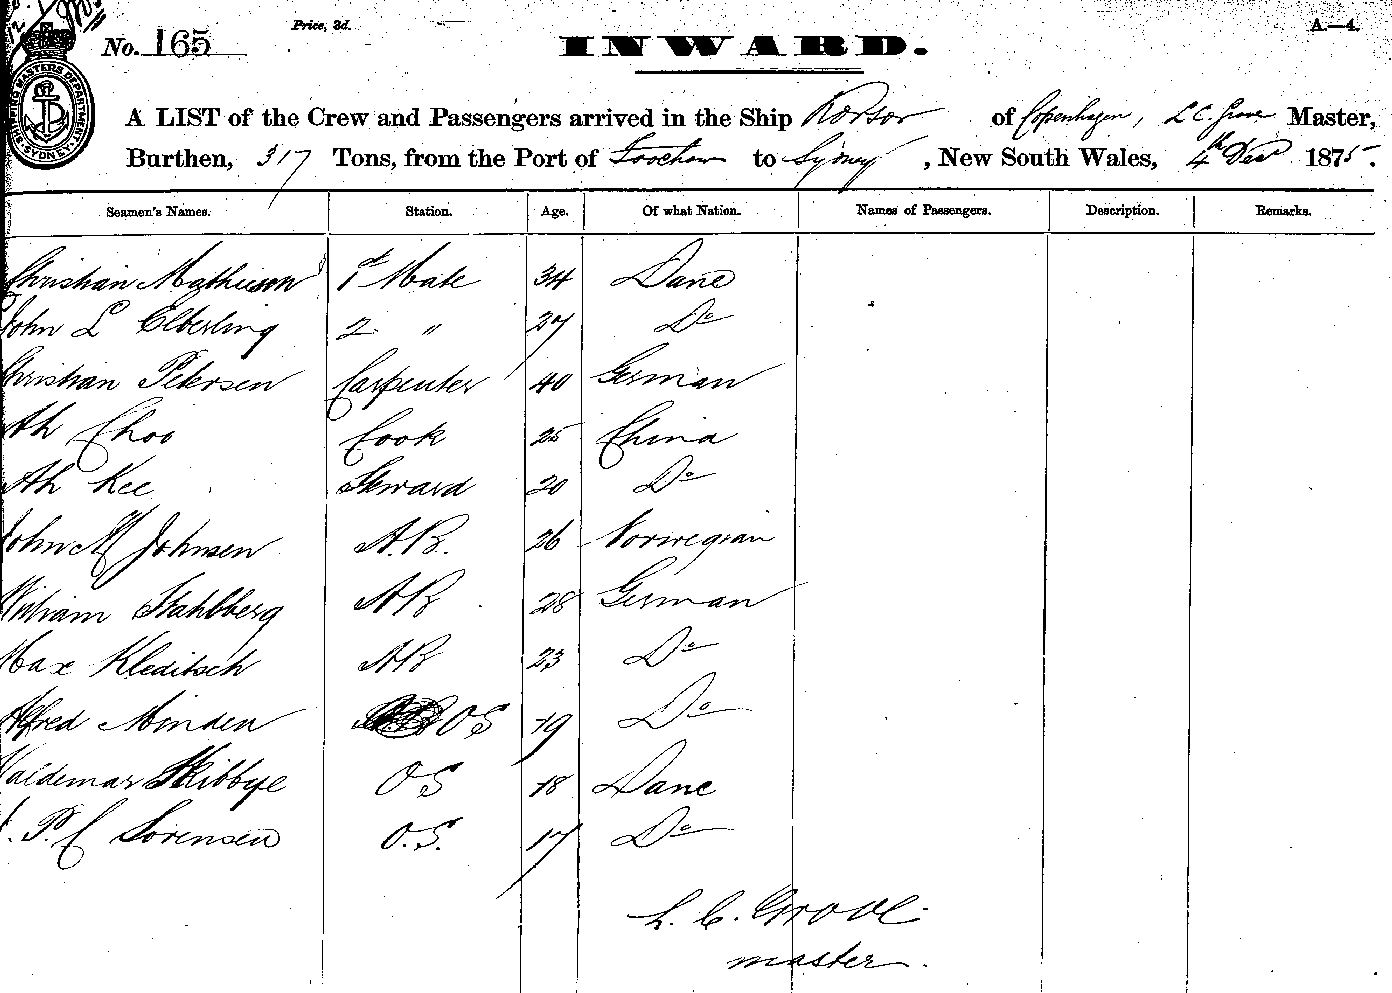 No. 165
Price, 3d.
INWARD.
A.—4.
SHIPPING MASTERS DEPARTMENT SYDNEY
A LIST of the Crew and Passengers arrived in the Ship Korsor of Copenhagen, L C. Grove Master,
Burthen, 317 Tons, from the Port of Foochow to Sydney, New South Wales, 4th Decr 1875.
Seamen's Names. Station. Age. Of what Nation. Names of Passengers. Description. Remarks.
Christian Mathieson 1st Mate 34 Dane
John L Elberling 2 " 27 Do
Christian Petersen Carpenter 40 German
Ah Choo Cook 25 China
Ah Kee Steward 20 Do
John M Johnsen A.B. 26 Norwegian
William Stahlberg AB 28 German
Max Kleditsch AB 23 Do
Alfred Minden OS 19 Do
Valdemar Skibbye OS 18 Dane
P. C Sorensen O.S. 17 Do
L. C. Grove
master.